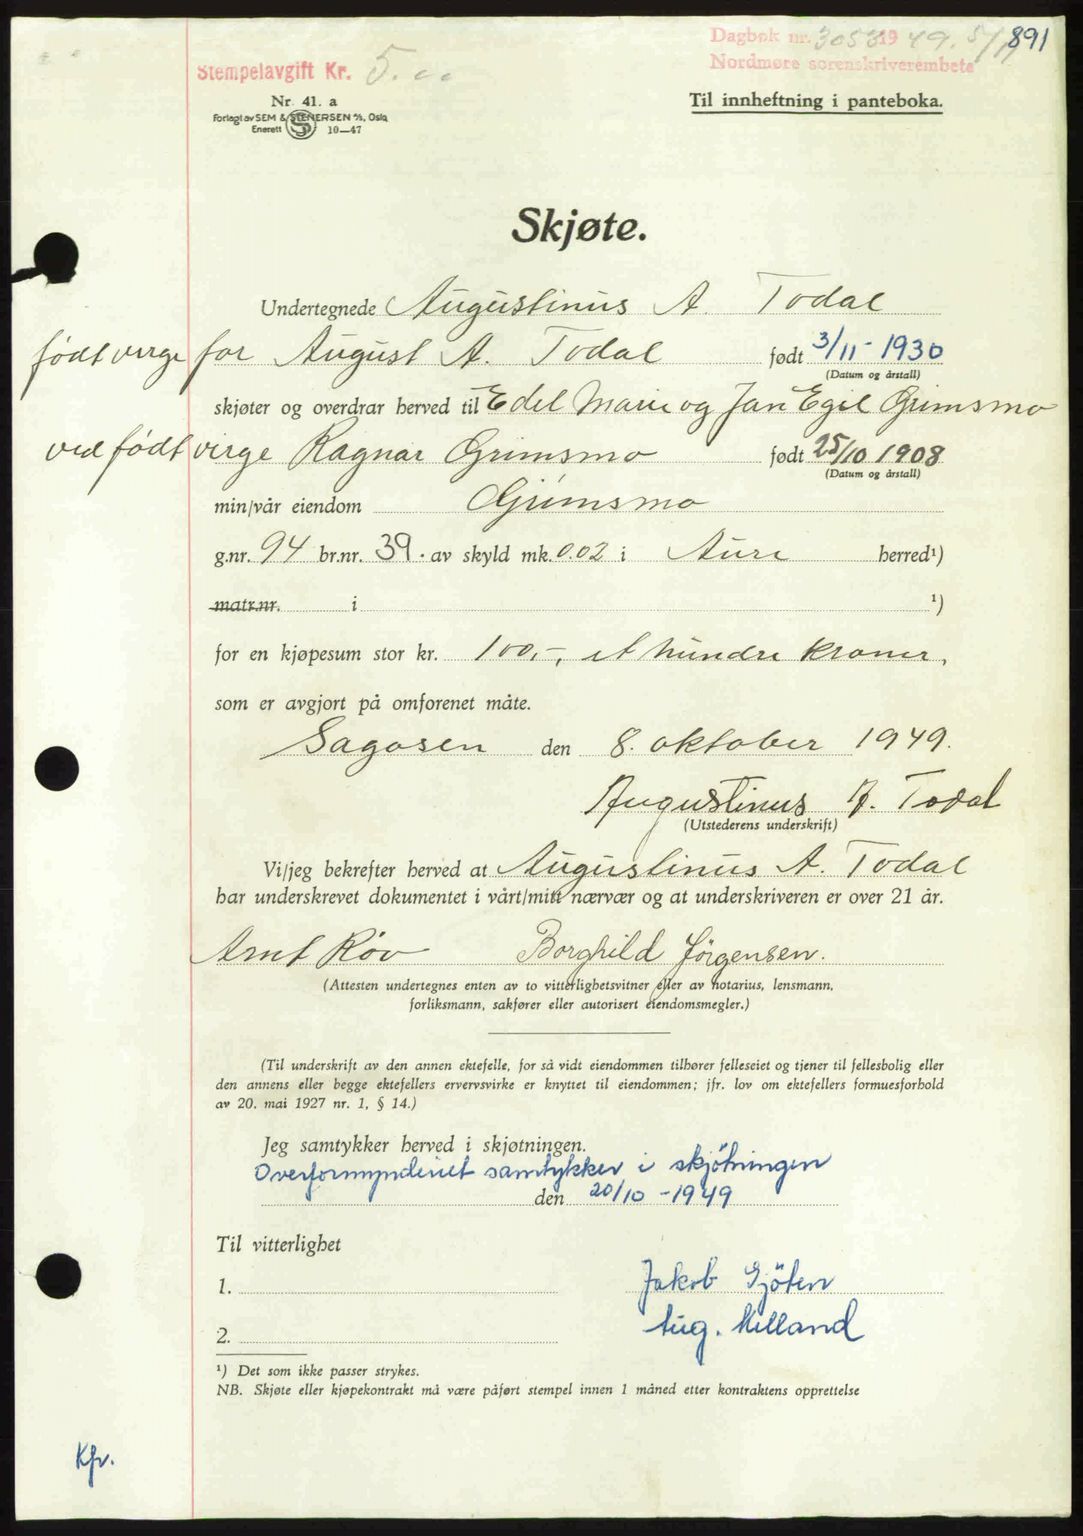 Dagbok nr. 3053 1949. 5/11 891
Nordmøre sorenskriverembete
Stempelavgift Kr. 5.00
Nr. 41. a
Til innheftning i panteboka.
Forlagt av SEM & STENERSEN A/S, Oslo
Enerett 10—47
Skjøte.
Undertegnede Augustinus A. Todal
født verge for August A. Todal født 3/11 - 1930
(Datum og årstall)
skjøter og overdrar herved til Edel Marie og Jan Egil Grimsmo
ved født virge Ragnar Grimsmo født 25/10 1908
(Datum og årstall)
min/vår eiendom Grimsmo
g.nr. 94 br.nr. 39. av skyld mk. 0.02 i Aure herred¹)
matr.nr. i ¹)
for en kjøpesum stor kr. 100,-, et hundre kroner,
som er avgjort på omforenet måte.
Sagosen den 8. oktober 1949.
Augustinus A. Todal
(Utstederens underskrift)
Vi/jeg bekrefter herved at Augustinus A. Todal
har underskrevet dokumentet i vårt/mitt nærvær og at underskriveren er over 21 år.
Arnt Röv Borghild Jörgensen.
(Attesten undertegnes enten av to vitterlighetsvitner eller av notarius, lensmann,
forliksmann, sakfører eller autorisert eiendomsmegler.)
(Til underskrift av den annen ektefelle, for så vidt eiendommen tilhører felleseiet og tjener til fellesbolig eller
den annens eller begge ektefellers ervervsvirke er knyttet til eiendommen; jfr. lov om ektefellers formuesforhold
av 20. mai 1927 nr. 1, § 14.)
Jeg samtykker herved i skjøtningen.
Overformynderiet samtykker i skjötningen
den 20/10 - 1949
Til vitterlighet
1. Jakob Gjöten
2. Aug. Melland
¹) Det som ikke passer strykes.
NB. Skjøte eller kjøpekontrakt må være påført stempel innen 1 måned etter kontraktens opprettelse
Kfr.